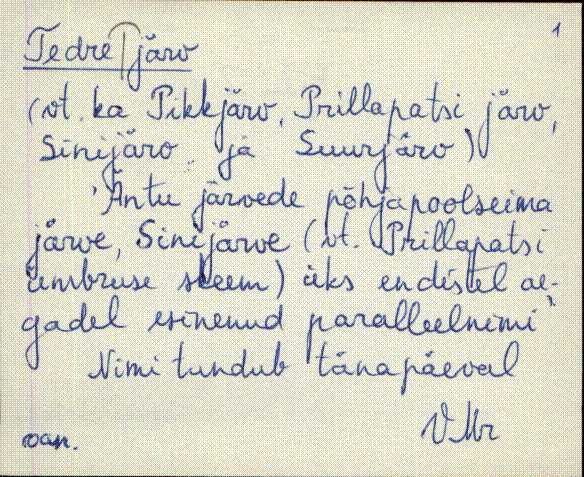 1
Tedre järv
(vt. ka Pikkjärv, Prillapatsi järv,
Sinijärv ja Suurjärv)
Äntu järvede põhjapoolseima
järve, Sinijärve (vt. Prillapatsi
ümbruse skeem) üks endistel ae-
gadel esinenud paralleelnimi
Nimi tundub tänapäeval
VMr
van.